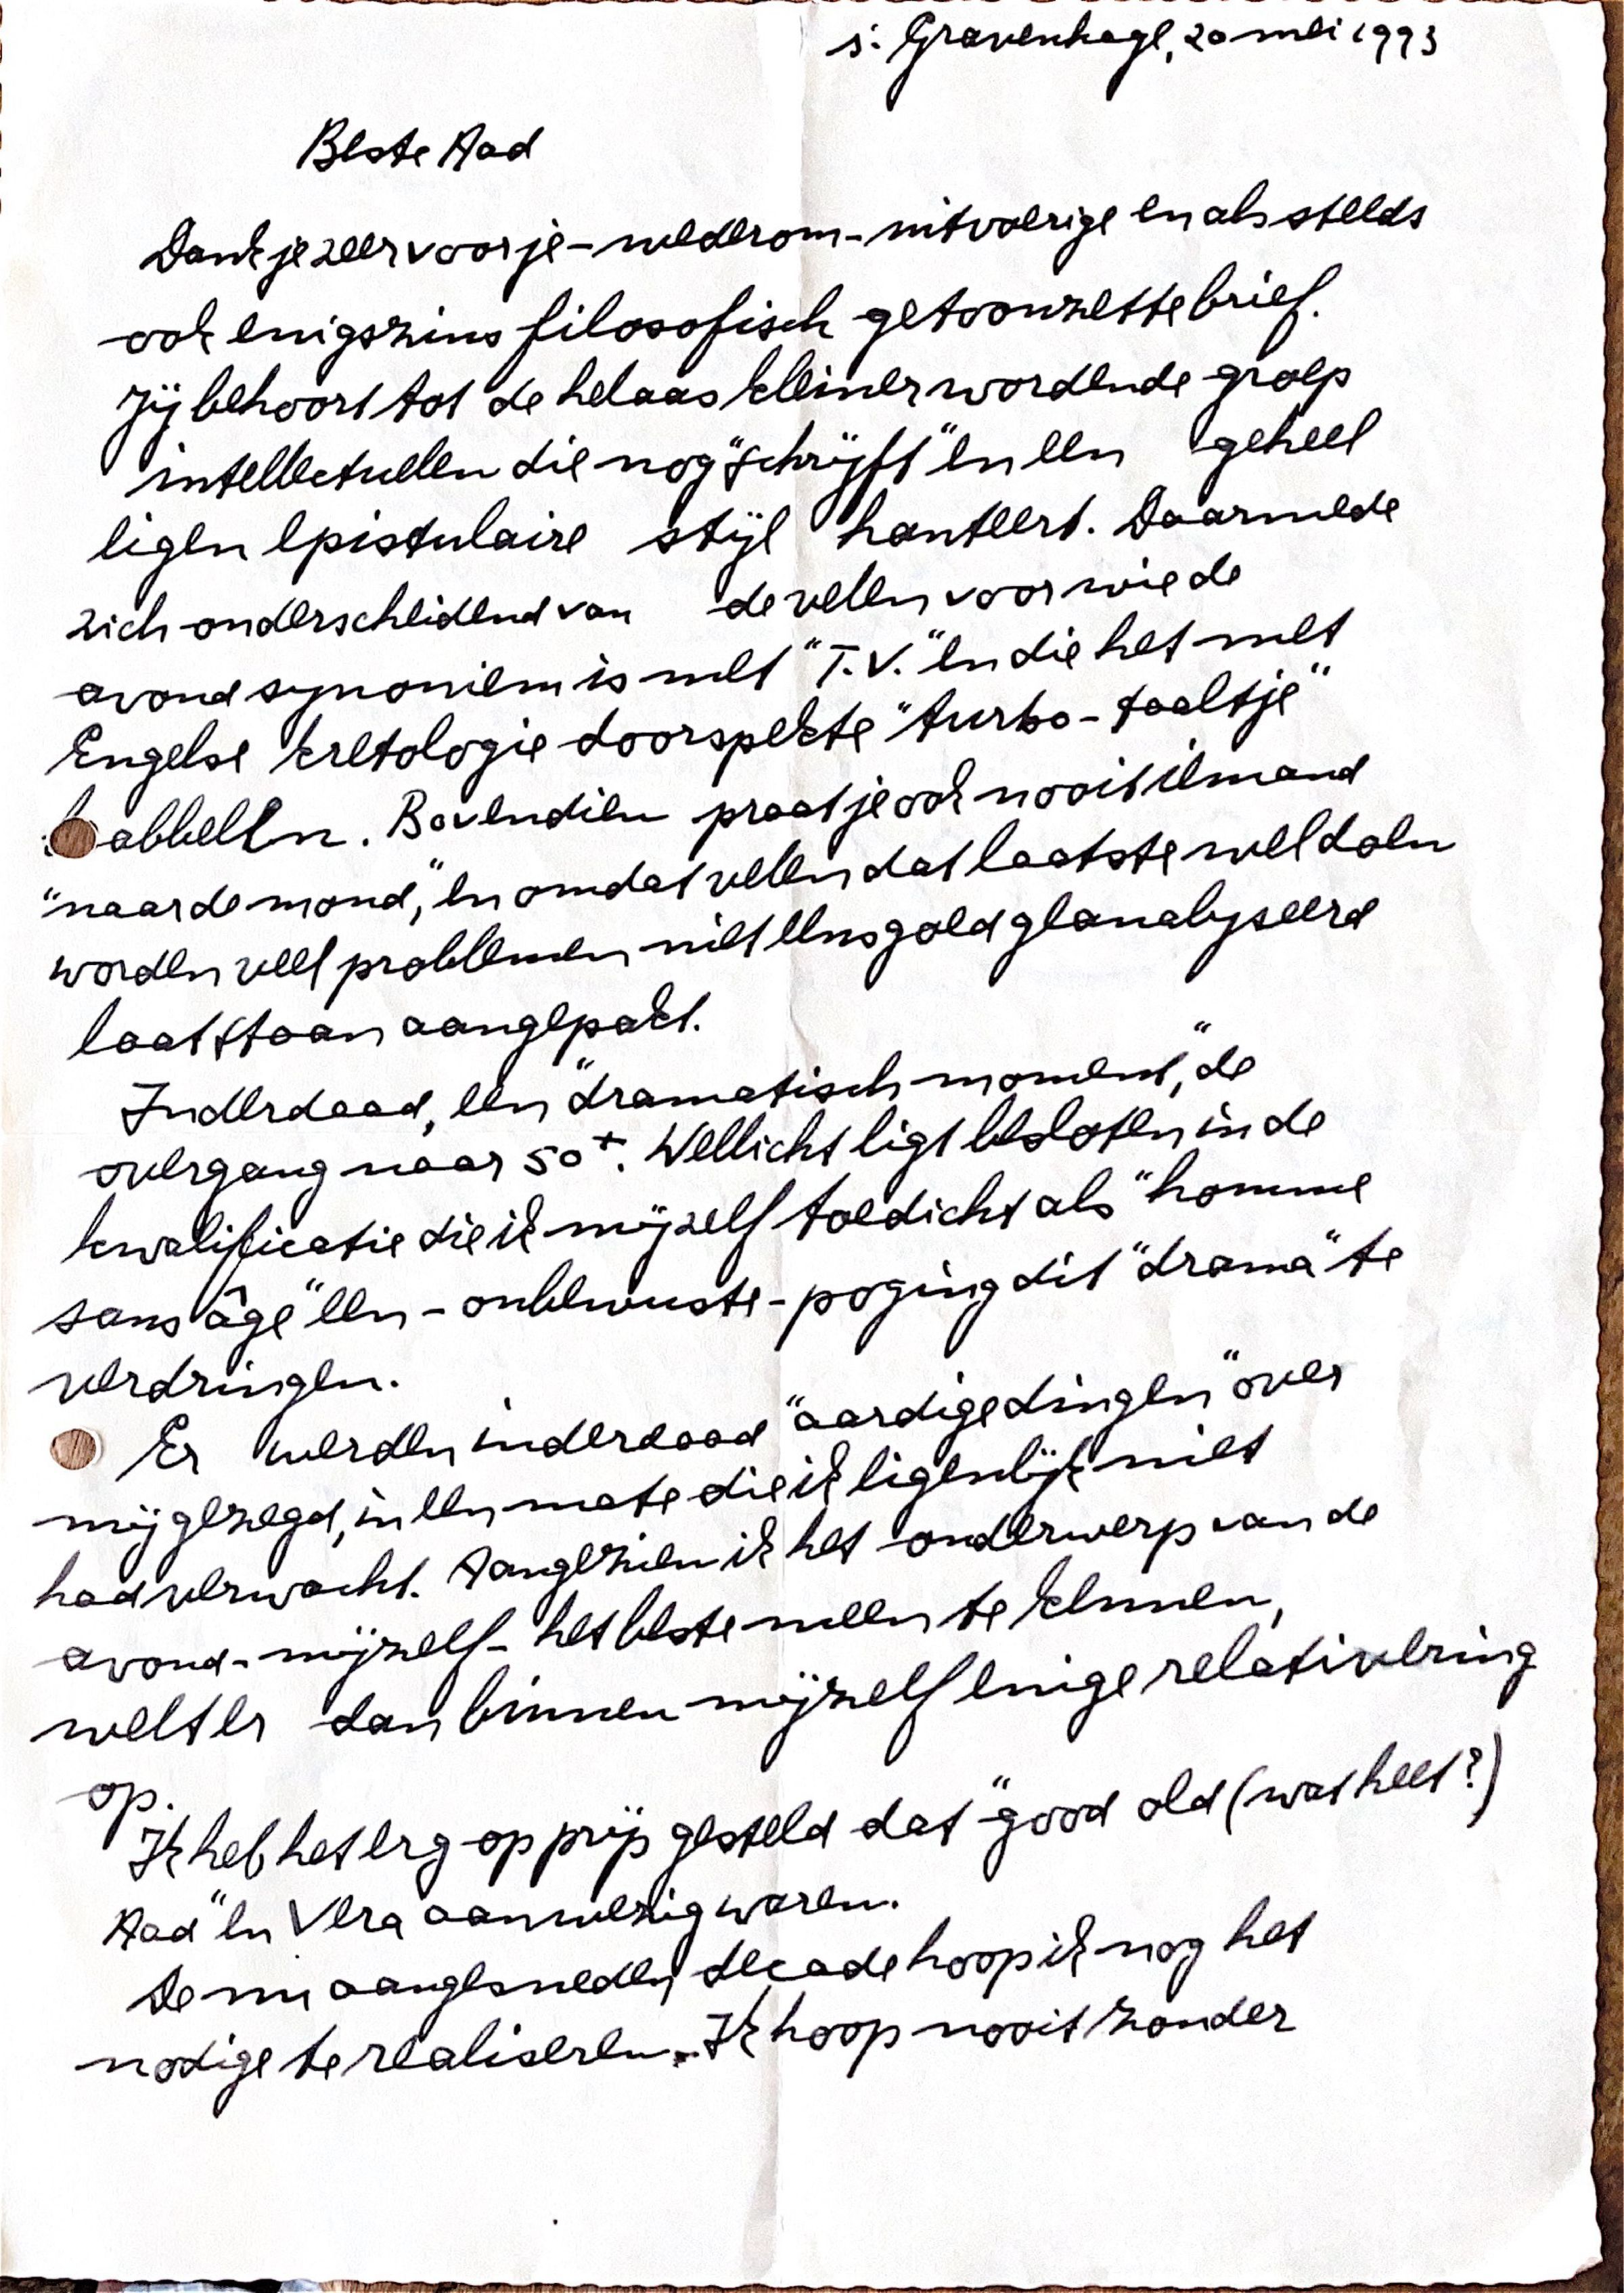 s'Gravenhage, 20 mei 1993
Beste Aad
Dank je zeer voor je - wederom - uitvoerige en als steeds
ook enigszins filosofisch getoonzette brief.
Jij behoort tot de helaas kleiner wordende groep
intellectuelen die nog "schrijft" en een geheel
eigen epistulaire stijl hanteert. Daarmede
zich onderscheidend van de velen voor wie de
avond synoniem is met "T.V." en die het met
Engelse kretologie doorspekte "turbo-taaltje"
babbelen. Bovendien praat je ook nooit iemand
"naar de mond," en omdat velen dat laatste wel doen
worden veel problemen niet eens goed geanalyseerd
laat staan aangepakt.
Inderdaad, een "dramatisch moment," de
overgang naar 50+. Wellicht ligt besloten in de
kwalificatie die ik mijzelf toedicht als "homme
sans âge" een - onbewuste - poging dit "drama" te
verdringen.
Er werden inderdaad "aardige dingen" over
mij gezegd, in een mate die ik eigenlijk niet
had verwacht. Aangezien ik het onderwerp van de
avond - mijzelf - het beste meen te kennen,
welt er dan binnen mijzelf enige relativering
op.
Ik heb het erg op prijs gesteld dat "good old (wat heet?)
Aad" en Vera aanwezig waren.
De nu aangesneden decade hoop ik nog het
nodige te realiseren. Ik hoop nooit zonder